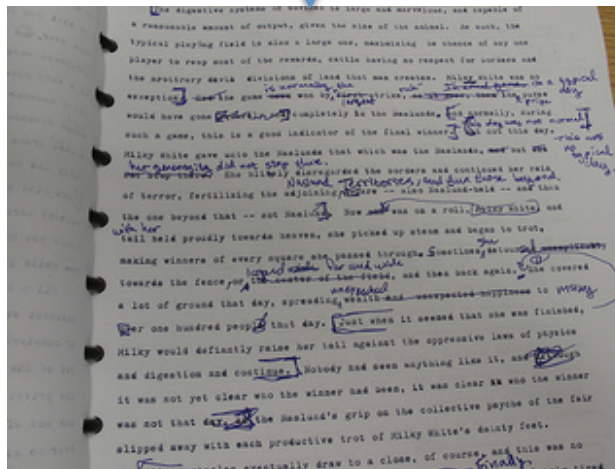 The digestive systems of bovines is large and marvelous, and capable of
a reasonable amount of output, given the size of the animal. As such, the
typical playing field is also a large one, maximizing the chance of any one
player to reap most of the rewards, cattle having no respect for borders and
the arbitrary divisions of land that man creates. Milky White was no
on a typical day
is normally, the
exception. the game won by strips, the purse
largest
would have gone completely to the Haslunds, and normally, during
this day was not normal
such a game, this is a good indicator of the final winner. But not this day.
this was no typical day.
Milky White gave unto the Haslunds that which was the Haslunds, but
her generosity did not stop there.
She blithely disregarded the borders and continued her rain
Haslund Territories, and
of terror, fertilizing the adjoining square -- also Haslund-held -- and then
the one beyond that -- not Haslund. Now was on a roll. Milky White, and
with her
tail held proudly towards heaven, she picked up steam and began to trot,
making winners of every square she passed through. Sometimes, she detoured
far and wide
towards the fence, or the center of the field, and then back again. She covered
unexpected
a lot of ground that day, spreading wealth and unexpected happiness to
over one hundred people that day. Just when it seemed that she was finished,
Milky would defiantly raise her tail against the oppressive laws of physics
and digestion and continue. Nobody had seen anything like it, and although
it was not yet clear who the winner had been, it was clear who the winner
was not that day, the Haslund's grip on the collective psyche of the fair
slipped away with each productive trot of Milky White's dainty feet.
Finally
eventually draw to a close, of course, and this was no